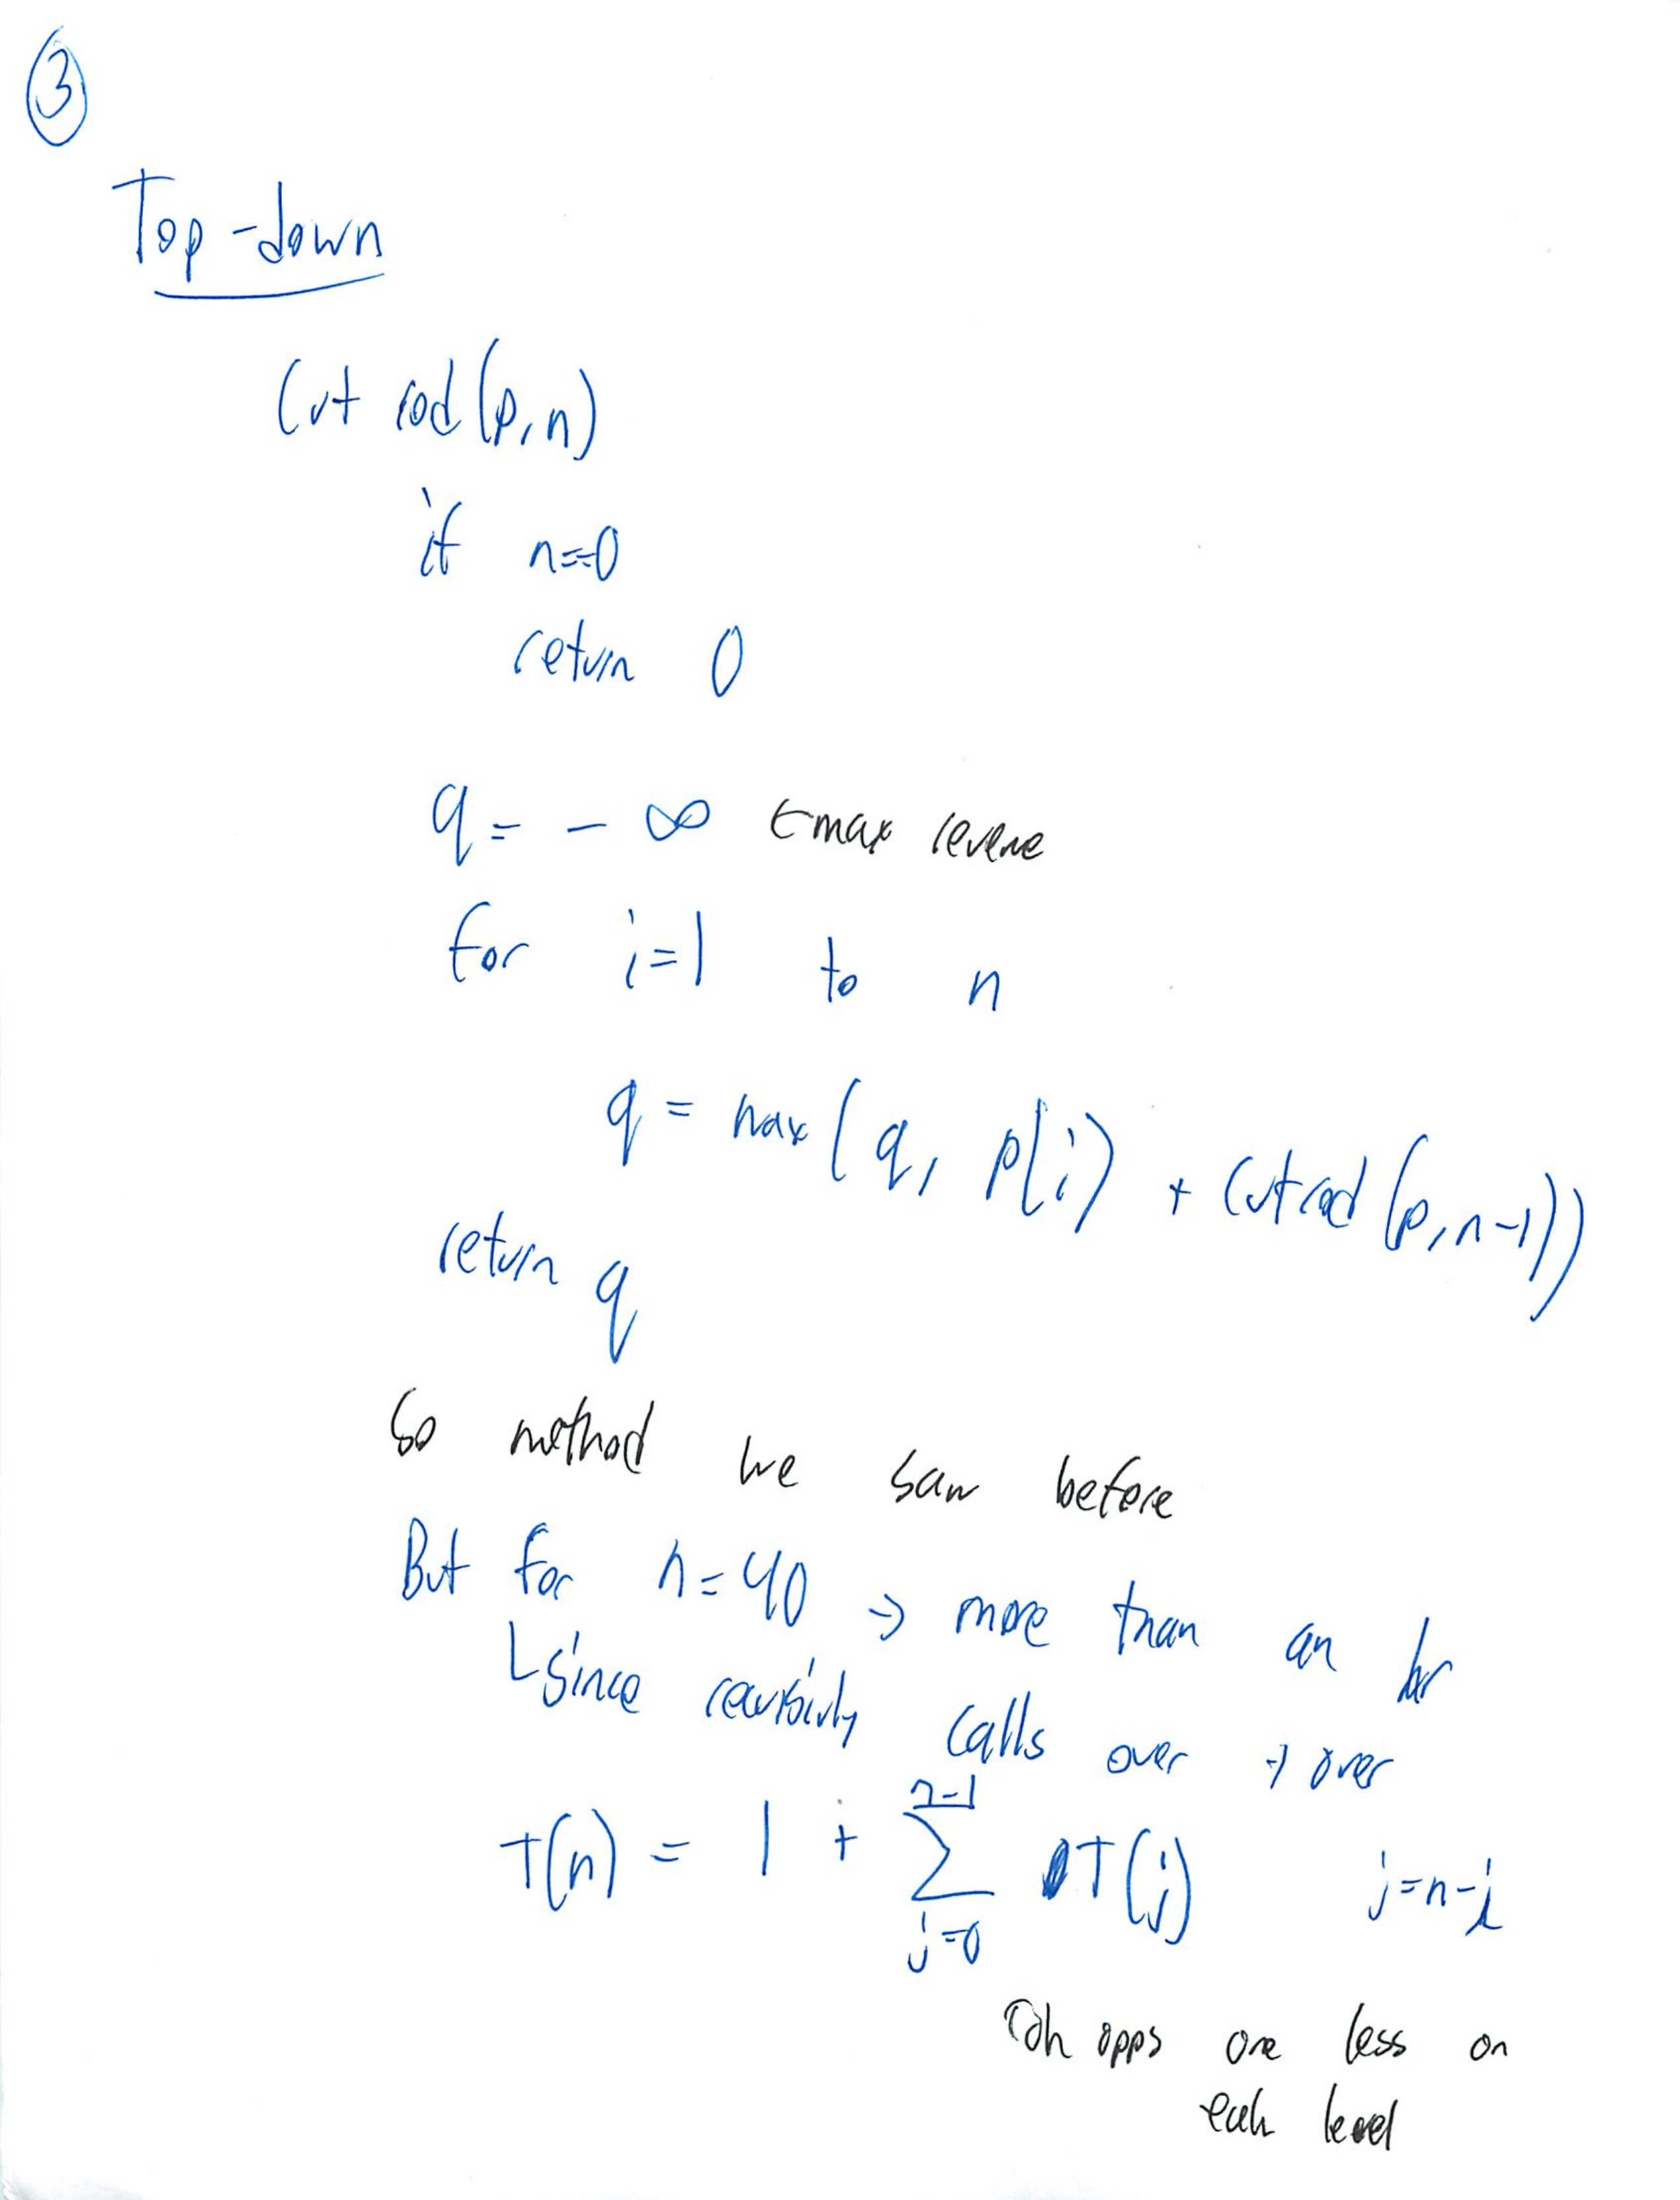 3
Top-down
Cut rod (p,n)
if n==0
return 0
q = - ∞ ← max revene
for i=1 to n
q = max (q, p[i] + cut rod (p, n-1))
return q
So method we saw before
But for n=40 → more than an hr
since calls over + over
T(n) = 1 + \sum_{j=0}^{n-1} T(j) j=n-i
opps one less on
each level